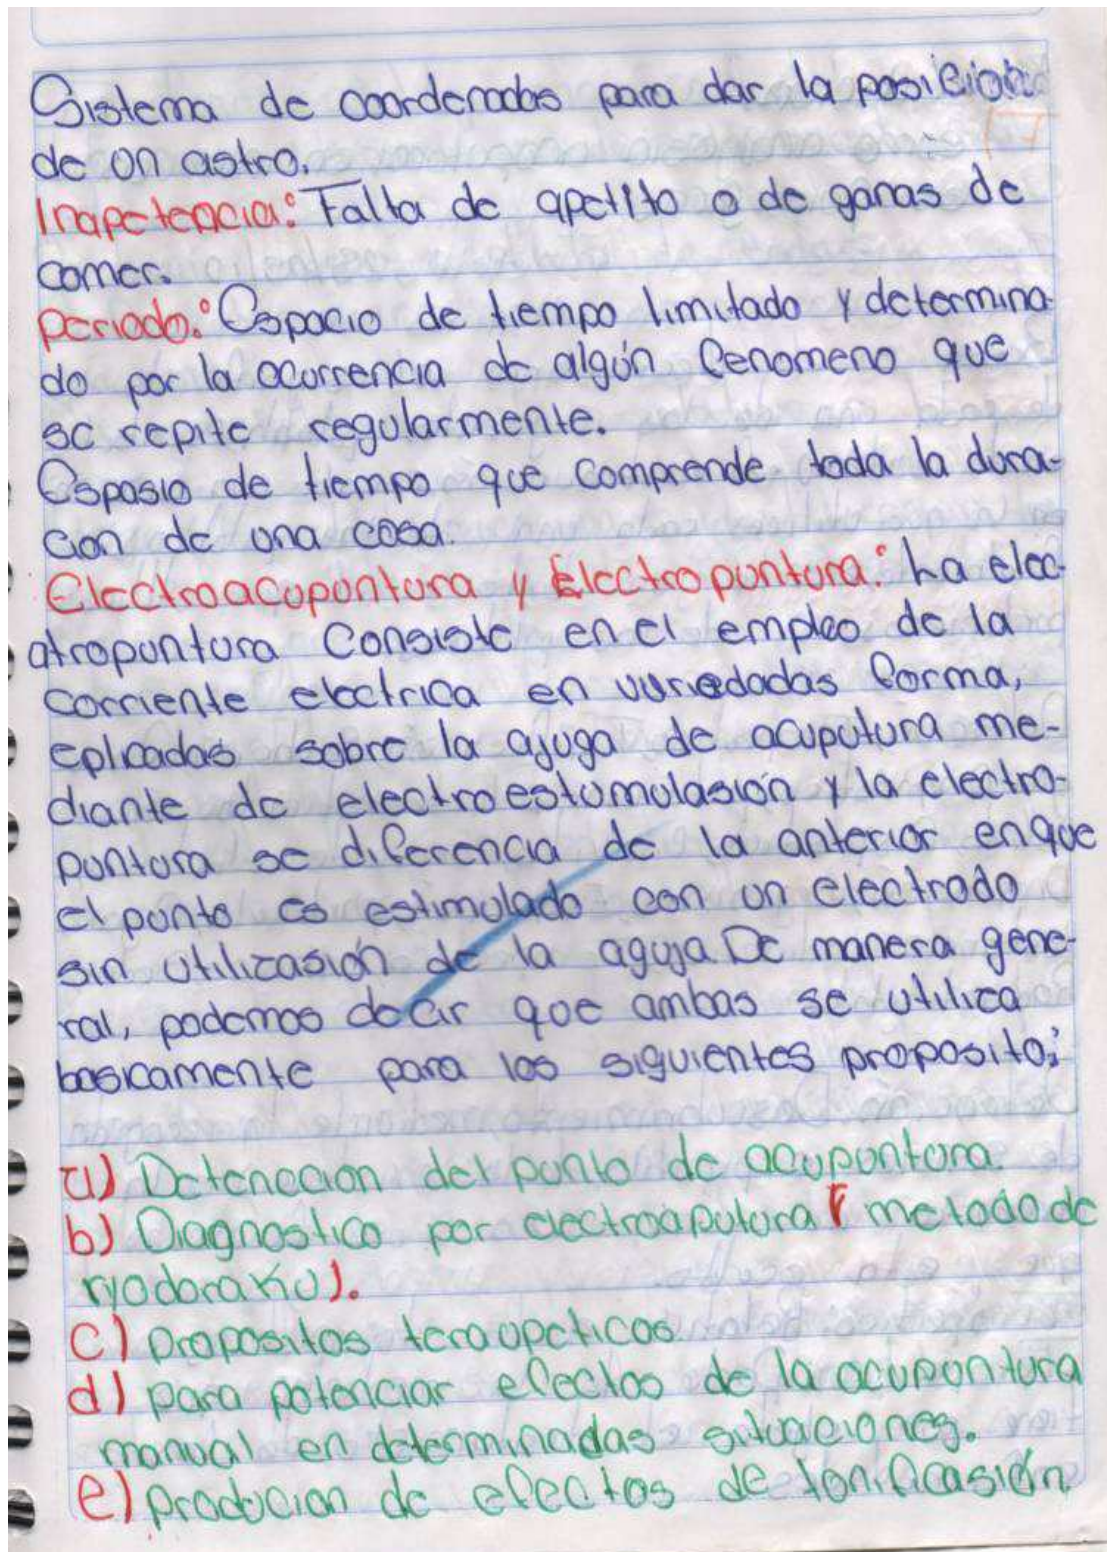 Sistema de coordenadas para dar la posicion
de un astro.
Inapetencia: Falta de apetito o de ganas de
comer.
periodo: Espacio de tiempo limitado y determina-
do por la ocurrencia de algún fenomeno que
se repite regularmente.
Espasio de tiempo que comprende toda la dura-
cion de una cosa.
Electroacupuntura y Electropuntura: La elec-
atropuntura Consiste en el empleo de la
corriente electrica en variedadas forma,
eplicadas sobre la ajuga de acuputura me-
diante de electroestumulasión y la electro-
puntura se diferencia de la anterior en que
el punto es estimulado con un electrodo
sin utilizasión de la aguja De manera gene-
ral, podemos decir que ambas se utiliza
basicamente para los siguientes proposito;
a) Detencion del punto de acupuntura.
b) Diagnostico por electroaputura ( metodo de
ryodoraku).
c) propositos teraupeticos
d) para potenciar efectos de la acupuntura
manual en determinadas situaciones.
e) producion de efectos de tonificasión